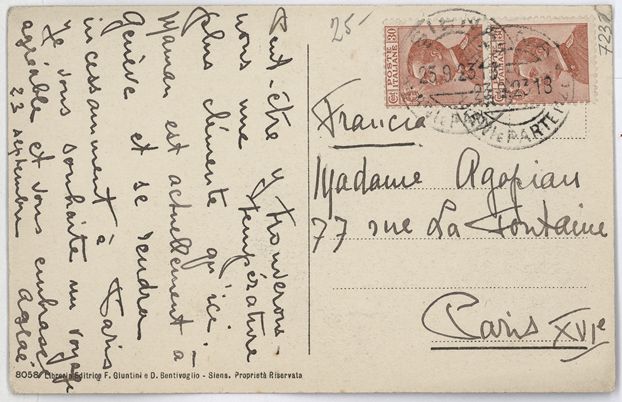 Peut-être y trouverons-
nous une température
plus clémente qu'ici.
Maman est actuellement à
Genève et se rendra
incessamment à Paris
Je vous souhaite un voyage
agréable et vous embrasse
23 septembre Aglaé
25-
7232
POSTE ITALIANE
C. 30
POSTE ITALIANE
C. 30
25.9.23
PARTENZE
Francia
Madame Agopian
77 rue La Fontaine
Paris XVIe
8058 Libreria Editrice F. Giuntini e D. Bentivoglio - Siena. Proprietà Riservata